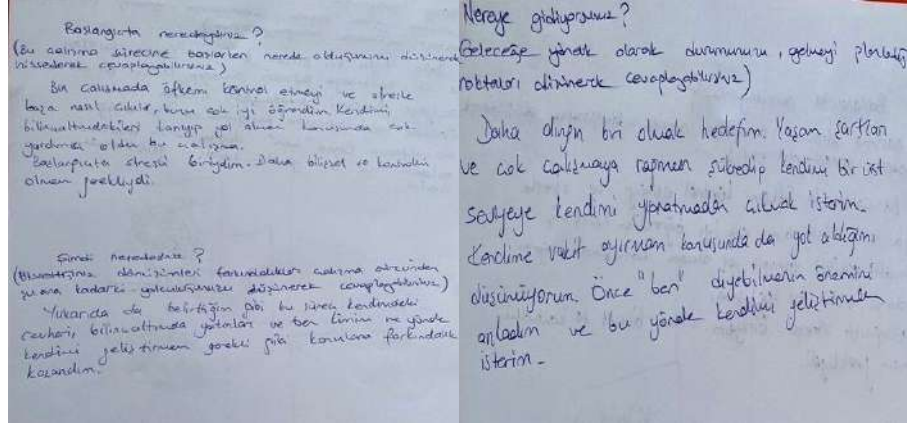 Başlangıçta neredeydiniz?
(Bu çalışma sürecine başlarken nerede olduğunuzu düşünerek
hissederek cevaplayabilirsiniz)
Bu çalışmada öfkemi kontrol etmeyi ve stresle
başa nasıl çıkılır, bunu çok iyi öğrendim. Kendimi,
bilinçaltımdakileri tanıyıp yol almam konusunda çok
yardımcı oldu bu çalışma.
Başlangıçta stresli biriydim. Daha bilişsel ve kontrollü
olmam gerekliydi.
Şimdi neredesiniz?
dönüşümleri farkındalıkları çalışma sürecinden
şu ana kadarki yolculuğunuzu düşünerek cevaplayabilirsiniz)
Yukarıda da belirttiğim gibi bu süreç kendimdeki
cevheri, bilinçaltımda yatanları ve ben kimim ne yönde
kendimi geliştirmem gerekli gibi konulara farkındalık
kazandım.
Nereye gidiyorsunuz?
Geleceğe yönelik olarak durumunuzu, gelmeyi planladığınız
noktaları düşünerek cevaplayabilirsiniz)
Daha dingin biri olmak hedefim. Yaşam şartları
ve çok çalışmaya rağmen şükredip kendimi bir üst
seviyeye kendimi yıpratmadan çıkmak isterim.
Kendime vakit ayırmam konusunda da yol aldığımı
düşünüyorum. Önce "ben" diyebilmenin önemini
anladım ve bu yönde kendimi geliştirmek
isterim.